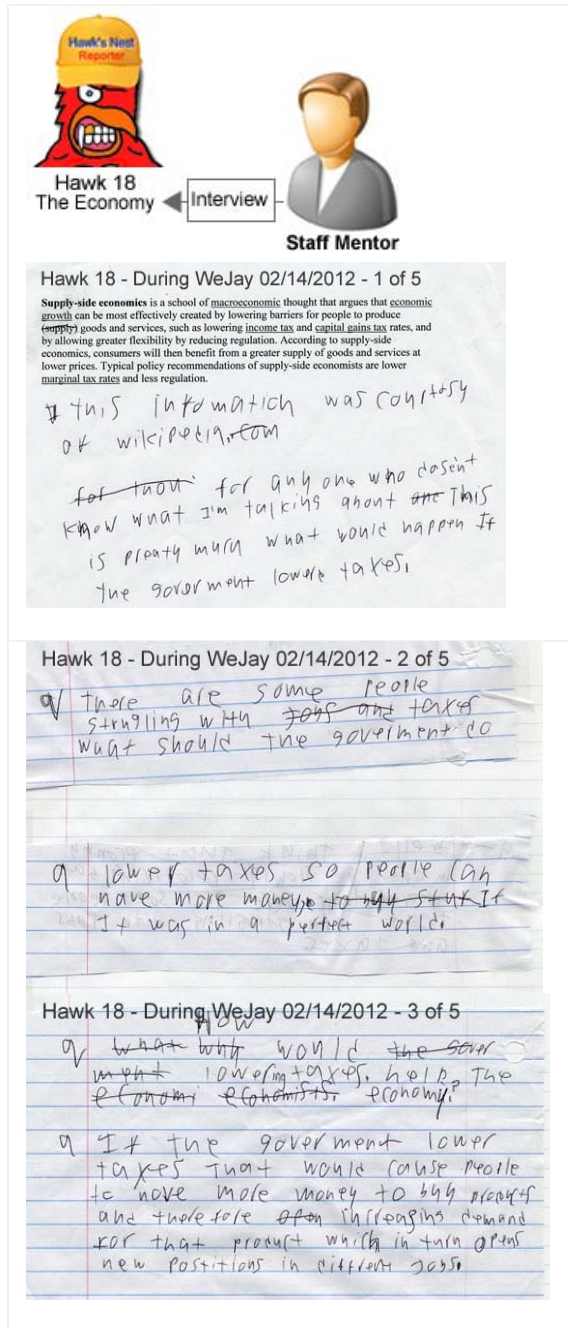 Hawk's Nest
Reporter
Hawk 18
The Economy
Interview
Staff Mentor
Hawk 18 - During WeJay 02/14/2012 - 1 of 5
Supply-side economics is a school of macroeconomic thought that argues that economic
growth can be most effectively created by lowering barriers for people to produce
(supply) goods and services, such as lowering income tax and capital gains tax rates, and
by allowing greater flexibility by reducing regulation. According to supply-side
economics, consumers will then benefit from a greater supply of goods and services at
lower prices. Typical policy recommendations of supply-side economists are lower
marginal tax rates and less regulation.
this infomation was courtosy
of wikipedia.com
for thou for any one who dosent
know what I'm talking about This
is preaty much what would happen If
the goverment lowere taxes.
Hawk 18 - During WeJay 02/14/2012 - 2 of 5
q there are some people
strugling with jobs and taxes
what should the goverment do
a lower taxes so people can
have more money, to buy stuf If
It was in a perfect world.
Hawk 18 - During WeJay 02/14/2012 - 3 of 5
How
q what why would the gover
ment lowering taxes. help the
economi economists. economy?
a If the goverment lower
taxes That would cause people
to have more money to buy products
and therefore increasing demand
for that product which in turn opens
new postitions in diffrent jobs.